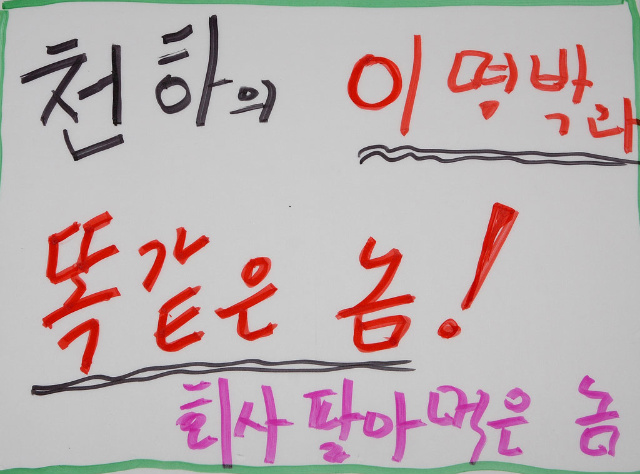 천하의 이명박과
똑같은 놈!
회사 팔아먹은 놈